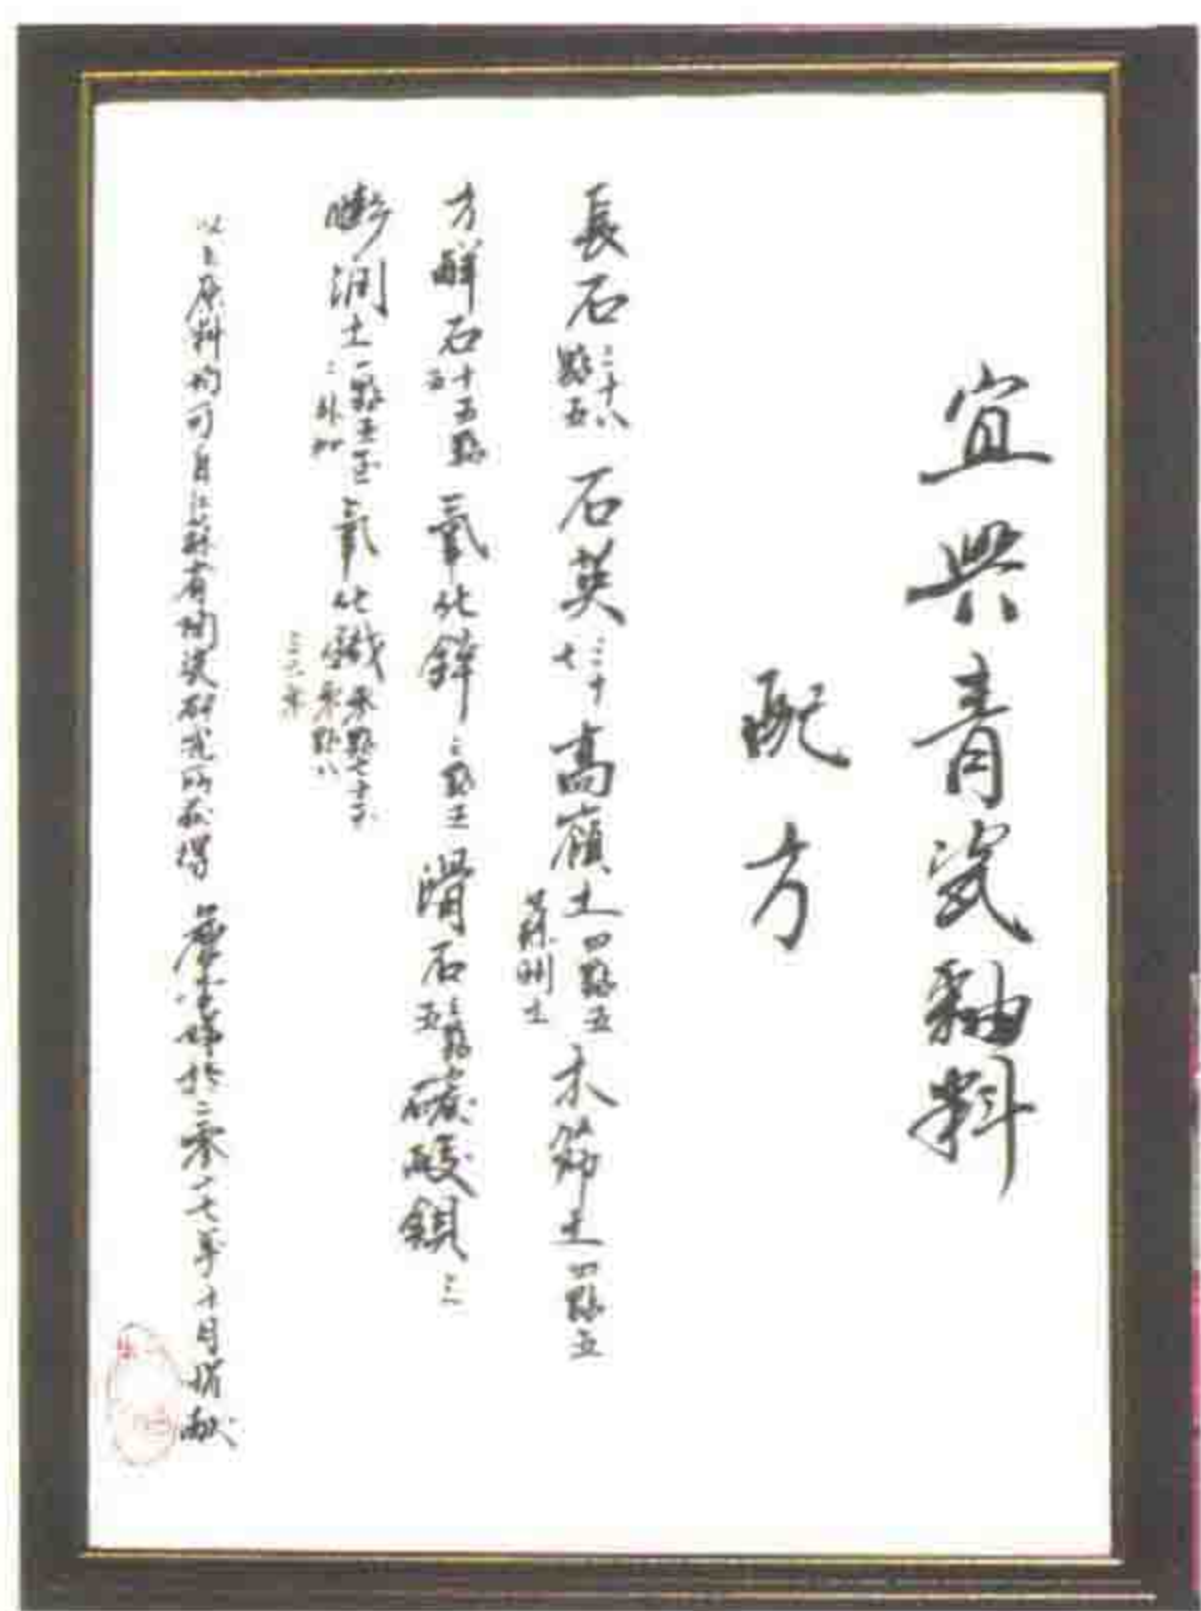 宜興青瓷釉料
配方
長石二十八點五 石英二十七 高嶺土四點五 蘇州土 木節土四點五
方解石十五點五 氧化鋅二點五 滑石二點五 碳酸鋇三
膨润土一點五至二外加 氧化鐵零點七十六 零點八
以上原料均可自江蘇省陶瓷研究所获得 於二零一七年十月捐献